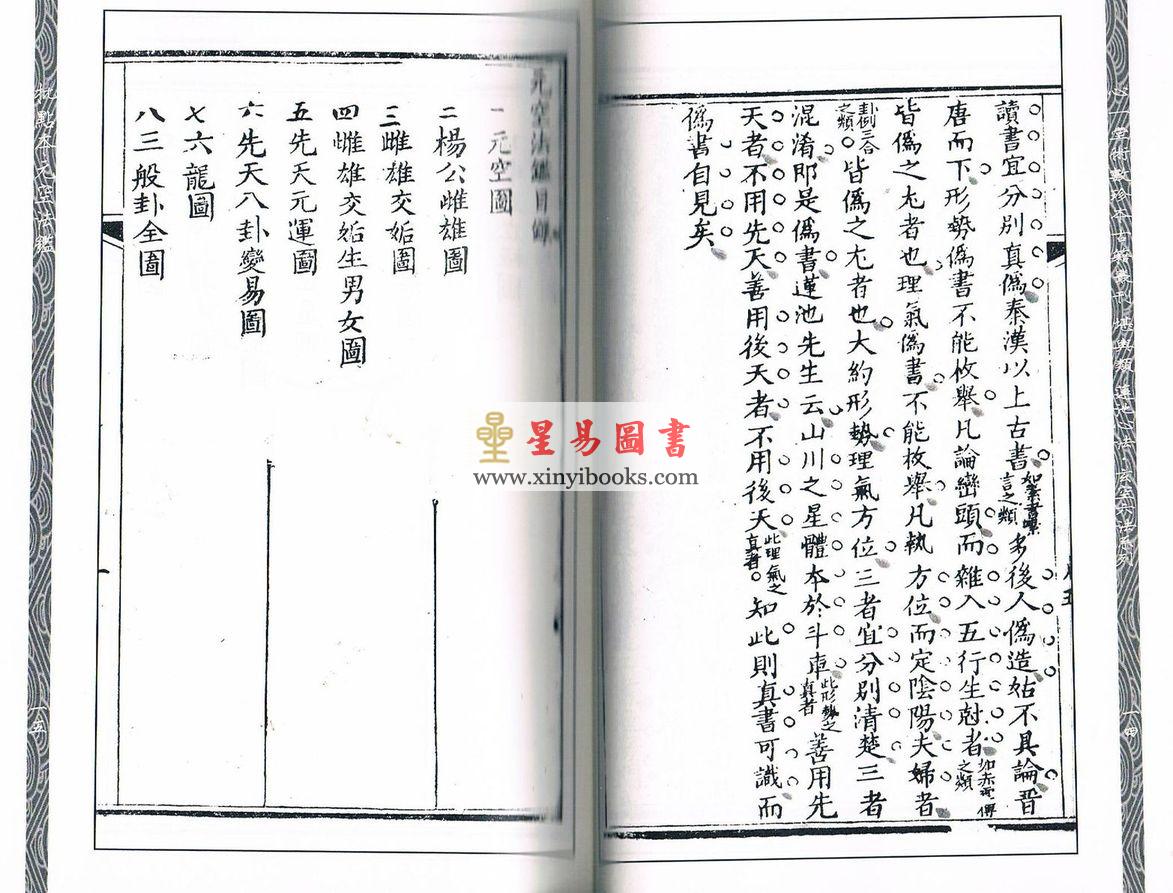 讀書宜分別真偽秦漢以上古書如素書 言之類多後人偽造姑不具論晉
唐而下形勢偽書不能枚舉凡論巒頭而雜入五行生尅者如赤電傳之類
皆偽之尤者也理氣偽書不能枚舉凡執方位而定陰陽夫婦者
劃三合之類皆偽之尤者也大約形勢理氣方位三者宜分別清楚三者
混淆即是偽書蓮池先生云山川之星體本於斗車此形勢之真者善用先
天者不用先天善用後天者不用後天此理氣之真者知此則真書可識而
偽書自見矣
元空法鑑目錄
一元空圖
二楊公雌雄圖
三雌雄交姤圖
四雌雄交姤生男女圖
五先天元運圖
六先天八卦變易圖
七六龍圖
八三般卦全圖
心一堂術數珍本古籍叢刊 堪輿類
一四
批點本元空法鑑
一五
星易圖書
www.xinyibooks.com